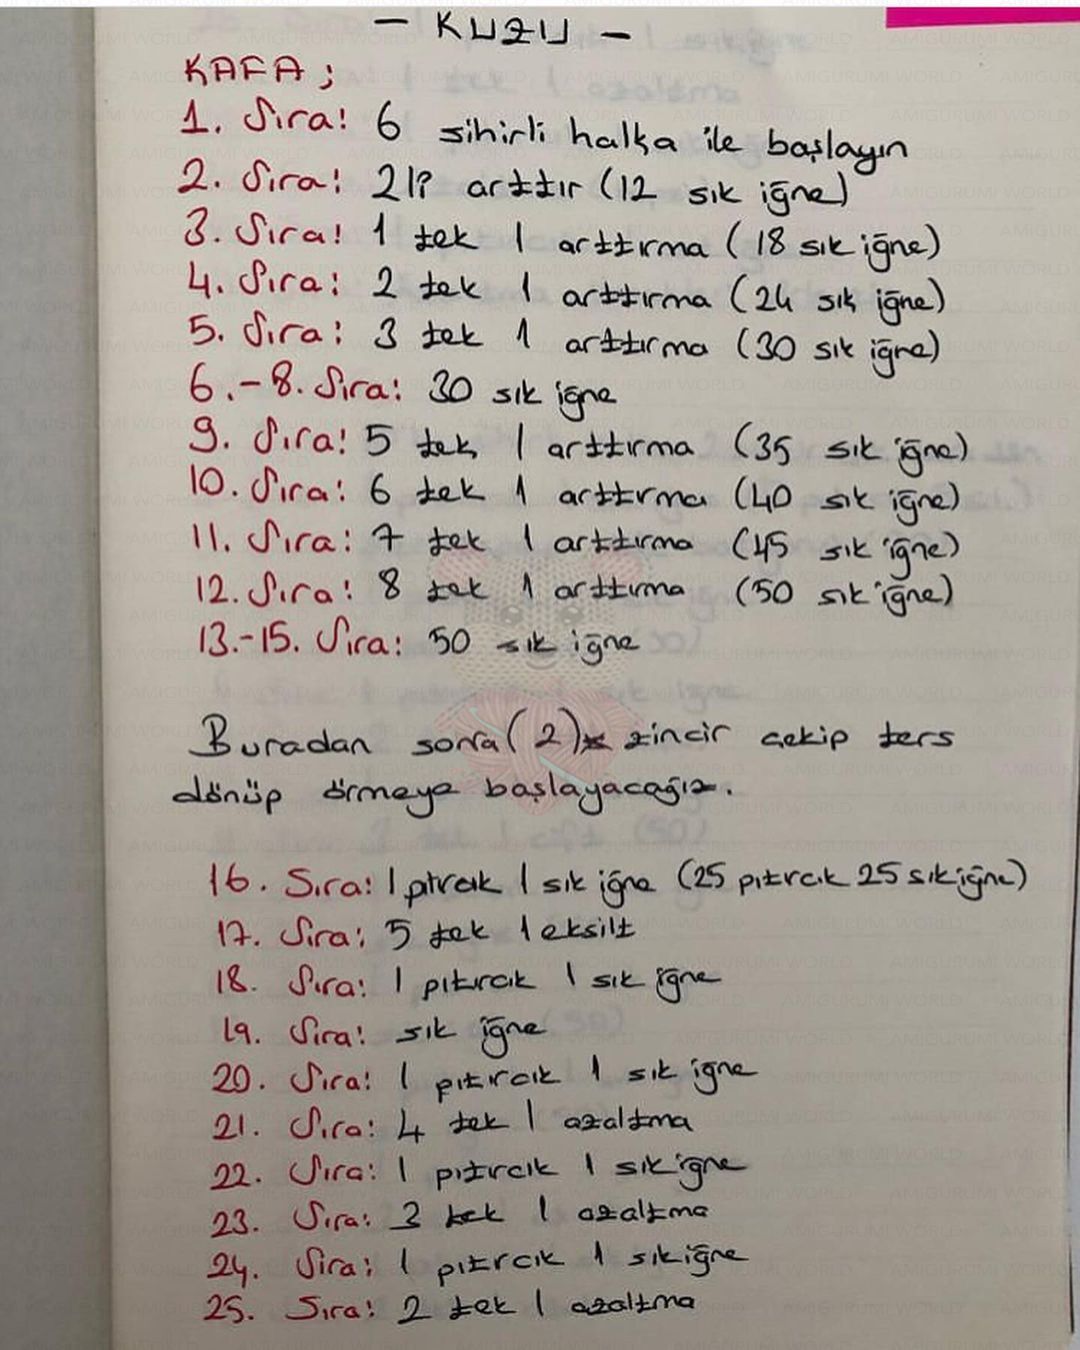 - KUZU -
KAFA;
1. Sıra: 6 sihirli halka ile başlayın
2. Sıra: 2li arttır (12 sık iğne)
3. Sıra: 1 tek 1 arttırma (18 sık iğne)
4. Sıra: 2 tek 1 arttırma (24 sık iğne)
5. Sıra: 3 tek 1 arttırma (30 sık iğne)
6.-8. Sıra: 30 sık iğne
9. Sıra: 5 tek 1 arttırma (35 sık iğne)
10. Sıra: 6 tek 1 arttırma (40 sık iğne)
11. Sıra: 7 tek 1 arttırma (45 sık iğne)
12. Sıra: 8 tek 1 arttırma (50 sık iğne)
13.-15. Sıra: 50 sık iğne
Buradan sonra (2) zincir çekip ters
dönüp örmeye başlayacağız.
16. Sıra: 1 pıtrcık 1 sık iğne (25 pıtrcık 25 sık iğne)
17. Sıra: 5 tek 1 eksilt
18. Sıra: 1 pıtırcık 1 sık iğne
19. Sıra: sık iğne
20. Sıra: 1 pıtırcık 1 sık iğne
21. Sıra: 4 tek 1 azaltma
22. Sıra: 1 pıtırcık 1 sık iğne
23. Sıra: 3 tek 1 azaltma
24. Sıra: 1 pıtrcık 1 sık iğne
25. Sıra: 2 tek 1 azaltma
AMIGURUMI WORLD